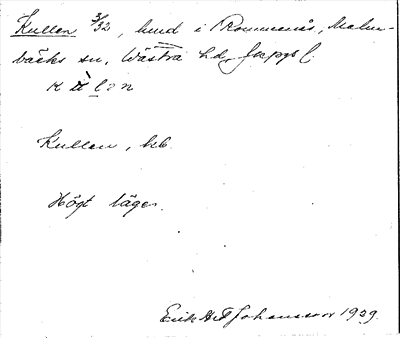 Kullen 3/32, hmd i Rommenäs, Malm-
bäcks sn, Västra hd, Jkpgs l.
Kullen, hb.
Högt läge.
Erik Johansson 1939.